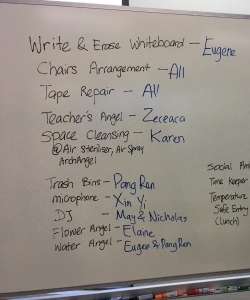 Write & Erase Whiteboard - Eugene
Chairs Arrangement - All
Tape Repair - All
Teacher's Angel - Zeceaca
Space Cleansing - Karen
@Air Steriliser, Air Spray
ArchAngel
Trash Bins - Pang Ran
microphone - Xin Yi
DJ - May & Nicholas
Flower Angel - Elaine
Water Angel - Eugen & Pang Ran
Social
Time Keeper
Temperature
Safe Entry
(Lunch)